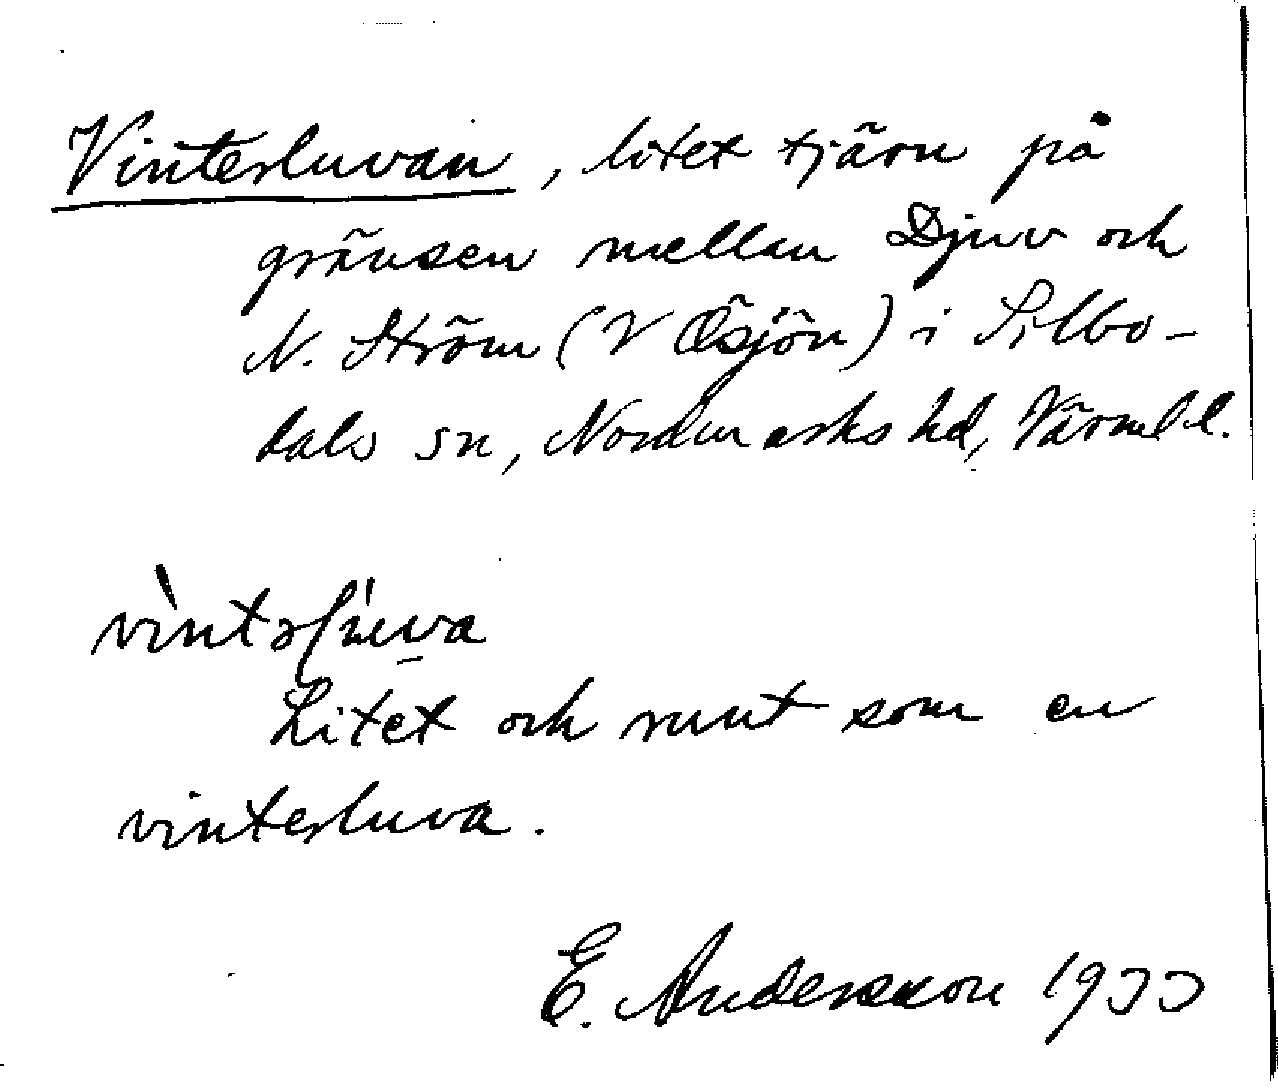 Vinterluvan, litet tjärn på
gränsen mellan Djuv och
N. Ström (V Ösjön) i Silbo-
dals sn, Nordmarks hd, Värml.
Litet och runt som en
vinterluva.
E. Andersson 1933